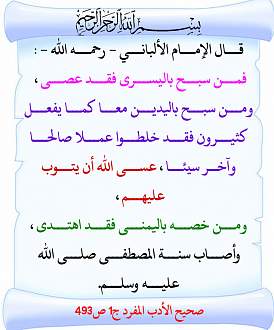 بسم الله الرحمن الرحيم
قال الإمام الألباني - رحمه الله - :
فمن سبح باليسرى فقد عصى ،
ومن سبح باليدين معا كما يفعل
كثيرون فقد خلطوا عملا صالحا
وآخر سيئا ، عسى الله أن يتوب
عليهم ،
ومن خصه باليمنى فقد اهتدى ،
وأصاب سنة المصطفى صلى الله
عليه وسلم.
صحيح الأدب المفرد ج1 ص493